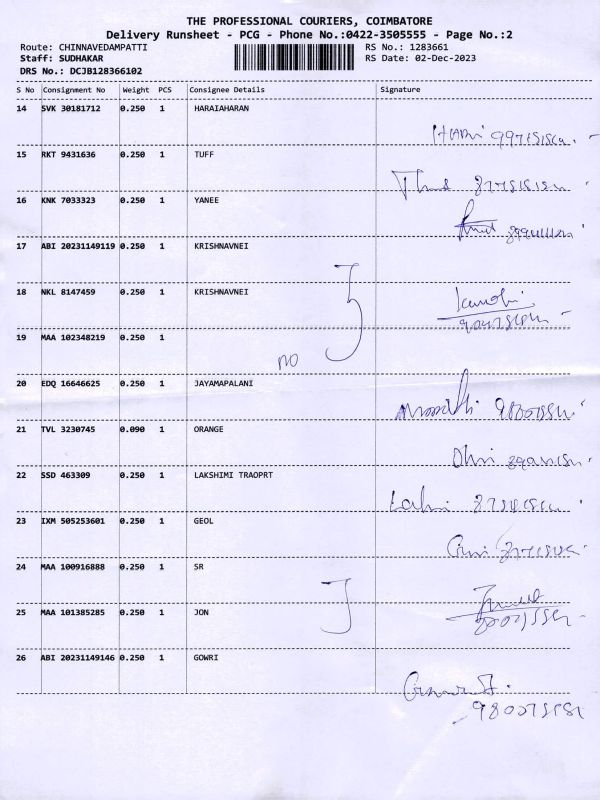 THE PROFESSIONAL COURIERS, COIMBATORE
Delivery Runsheet - PCG - Phone No.:0422-3505555 - Page No.:2
Route: CHINNAVEDAMPATTI RS No.: 1283661
Staff: SUDHAKAR RS Date: 02-Dec-2023
DRS No.: DCJB128366102
S No Consignment No Weight PCS Consignee Details Signature
14 SVK 30181712 0.250 1 HARAIAHARAN
15 RKT 9431636 0.250 1 TUFF
16 KNK 7033323 0.250 1 YANEE
17 ABI 20231149119 0.250 1 KRISHNAVNEI
18 NKL 8147459 0.250 1 KRISHNAVNEI
19 MAA 102348219 0.250 1
NO
20 EDQ 16646625 0.250 1 JAYAMAPALANI
21 TVL 3230745 0.090 1 ORANGE
22 SSD 463309 0.250 1 LAKSHIMI TRAOPRT
23 IXM 505253601 0.250 1 GEOL
24 MAA 100916888 0.250 1 SR
25 MAA 101385285 0.250 1 JON
26 ABI 20231149146 0.250 1 GOWRI